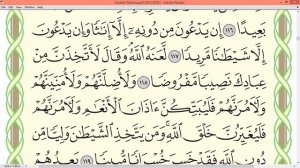 Mushaf Madina.pdf (SECURED) - Adobe Reader
بَعِيدًا ١١٦ إِن يَدْعُونَ مِن دُونِهِۦٓ إِلَّآ إِنَٰثًا وَإِن يَدْعُونَ
إِلَّا شَيْطَٰنًا مَّرِيدًا ١١٧ لَّعَنَهُ ٱللَّهُۘ وَقَالَ لَأَتَّخِذَنَّ مِنْ
عِبَادِكَ نَصِيبًا مَّفْرُوضًا ١١٨ وَلَأُضِلَّنَّهُمْ وَلَأُمَنِّيَنَّهُمْ
وَلَءَامُرَنَّهُمْ فَلَيُبَتِّكُنَّ ءَاذَانَ ٱلْأَنْعَٰمِ وَلَءَامُرَنَّهُمْ
فَلَيُغَيِّرُنَّ خَلْقَ ٱللَّهِۚ وَمَن يَتَّخِذِ ٱلشَّيْطَٰنَ وَلِيًّا مِّن
دُونِ ٱللَّهِ فَقَدْ خَسِرَ خُسْرَانًا مُّبِينًا ١١٩ يَعِدُهُمْ